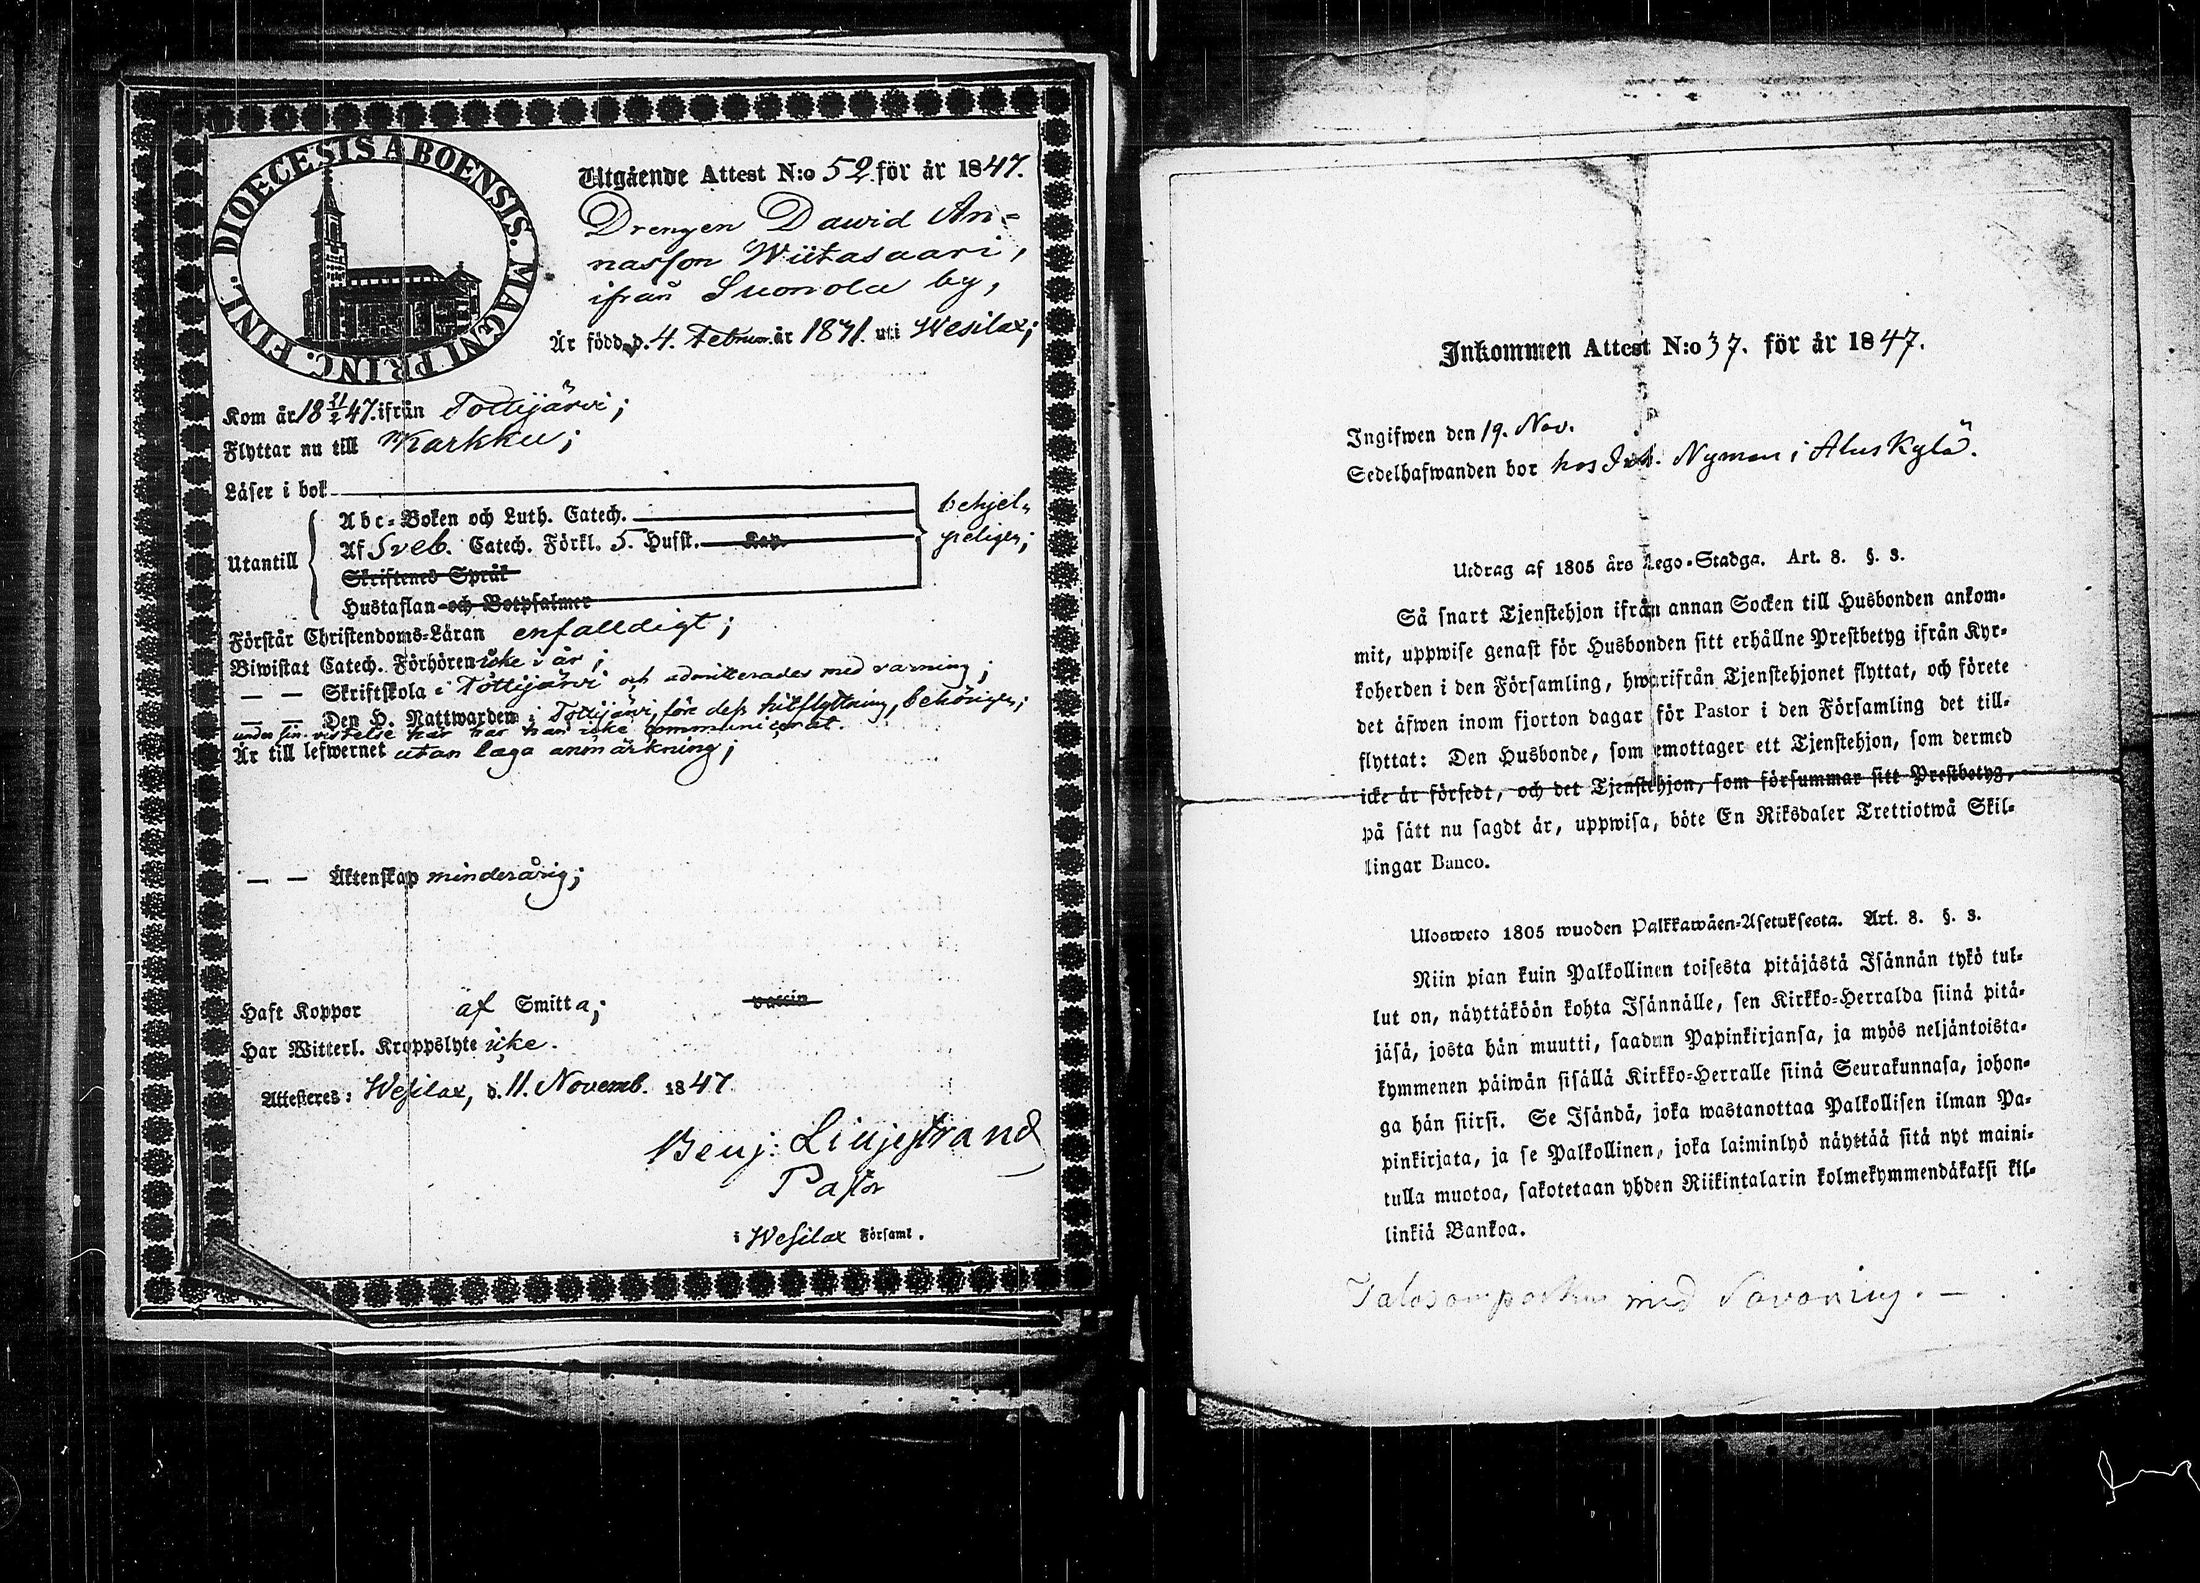 DIOECESIS ABOENSIS. MAGNI PRINC. FINL.
Utgående Attest N:o 52 för år 1847.
Drengen Dawid An-
nasson Wiitasaari,
ifrån Suonola by,
Är född d. 4. Februar. år 1831. uti Wesilax;
Kom år 18 11/2 47. ifrån Tottijärvi;
Flyttar nu till Karkku;
Läser i bok
Utantill
Abc-Boken och Luth. Catech.
Af Sveb. Catech. Förkl. 5. Hufst. Kap.
Skriftenes Språk
Hustaflan och Botpsalmer
behjel-
peligen;
Förstår Christendoms-Läran enfalldigt;
Biwistat Catech. Förhören icke i år;
— — Skriftskola i Tottijärvi och admitterades med varning;
— — Den H. Nattwarden i Tottijärvi, före dess hitflyttning, behörigen;
under sin vistelse här har han icke communicerat.
Är till lefwernet utan laga anmärkning;
— — Äktenskap minderårig;
Haft Koppor af Smitta; vaccin
Har Witterl. Kroppslyte icke.
Attesteres: Wesilax, d. 11. Novemb. 1847
Benj. Liljestrand
Pastor
i Wesilax Församl.
Inkommen Attest N:o 37. för år 1847.
Ingifwen den 19. Nov.
Sedelhafwanden bor hos Joh. Nyman i Aluskylä.
Utdrag af 1805 års Lego-Stadga. Art. 8. §. 3.
Så snart Tjenstehjon ifrån annan Socken till Husbonden ankom-
mit, uppwise genast för Husbonden sitt erhållne Prestbetyg ifrån Kyr-
koherden i den Församling, hwarifrån Tjenstehjonet flyttat, och förete
det äfwen inom fjorton dagar för Pastor i den Församling det till-
flyttat: Den Husbonde, som emottager ett Tjenstehjon, som dermed
icke är försedt, och det Tjenstehjon, som försummar sitt Prestbetyg,
på sätt nu sagdt är, uppwisa, böte En Riksdaler Trettiotwå Skil-
lingar Banco.
Ulosweto 1805 wuoden Palkkawäen-Asetuksesta. Art. 8. §. 3.
Niin pian kuin Palkollinen toisesta pitäjästä Isännän tykö tul-
lut on, näyttäköön kohta Isännälle, sen Kirkko-Herralda siinä pitä-
jäsä, josta hän muutti, saadun Papinkirjansa, ja myös neljäntoista-
kymmenen päiwän sisällä Kirkko-Herralle siinä Seurakunnasa, johon-
ga hän siirsi. Se Isändä, joka wastanottaa Palkollisen ilman Pa-
pinkirjata, ja se Palkollinen, joka laiminlyö näyttää sitä nyt maini-
tulla muotoa, sakotetaan yhden Riikintalarin kolmekymmendäkaksi kil-
linkiä Bankoa.
med